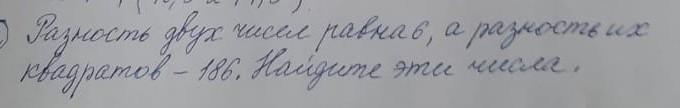 ) Разность двух чисел равна 6, а разность их
квадратов – 186. Найдите эти числа.